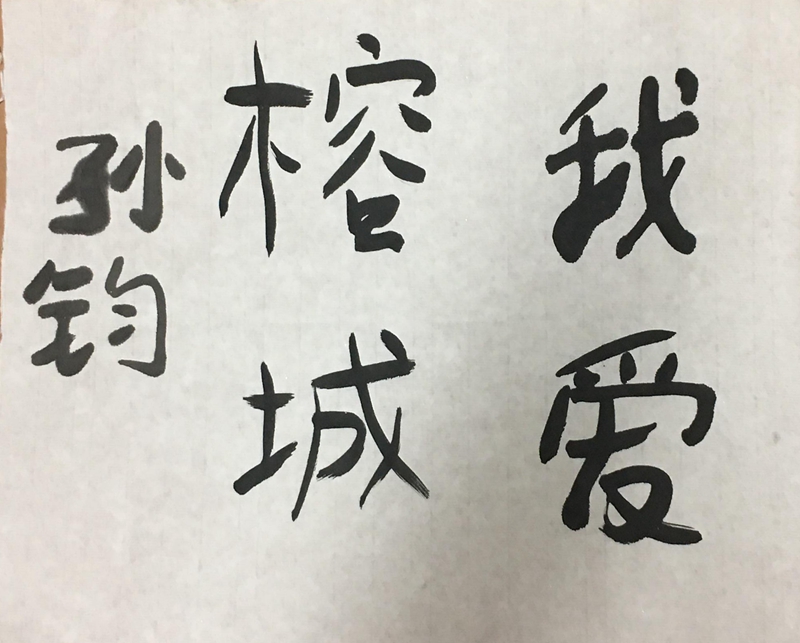 我爱
榕城
孙钧